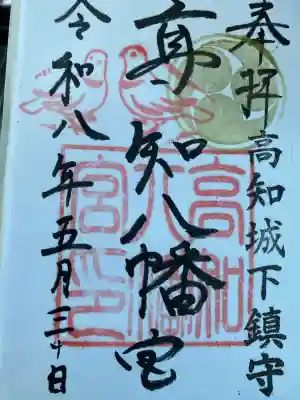 奉拝 高知城下鎮守
高知八幡宮
令和八年五月三十日
高知八幡宮印